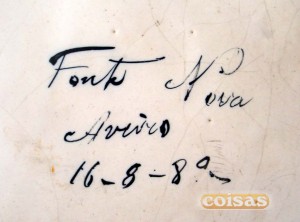 Fonte Nova
Aveiro
16-8-8
coisas